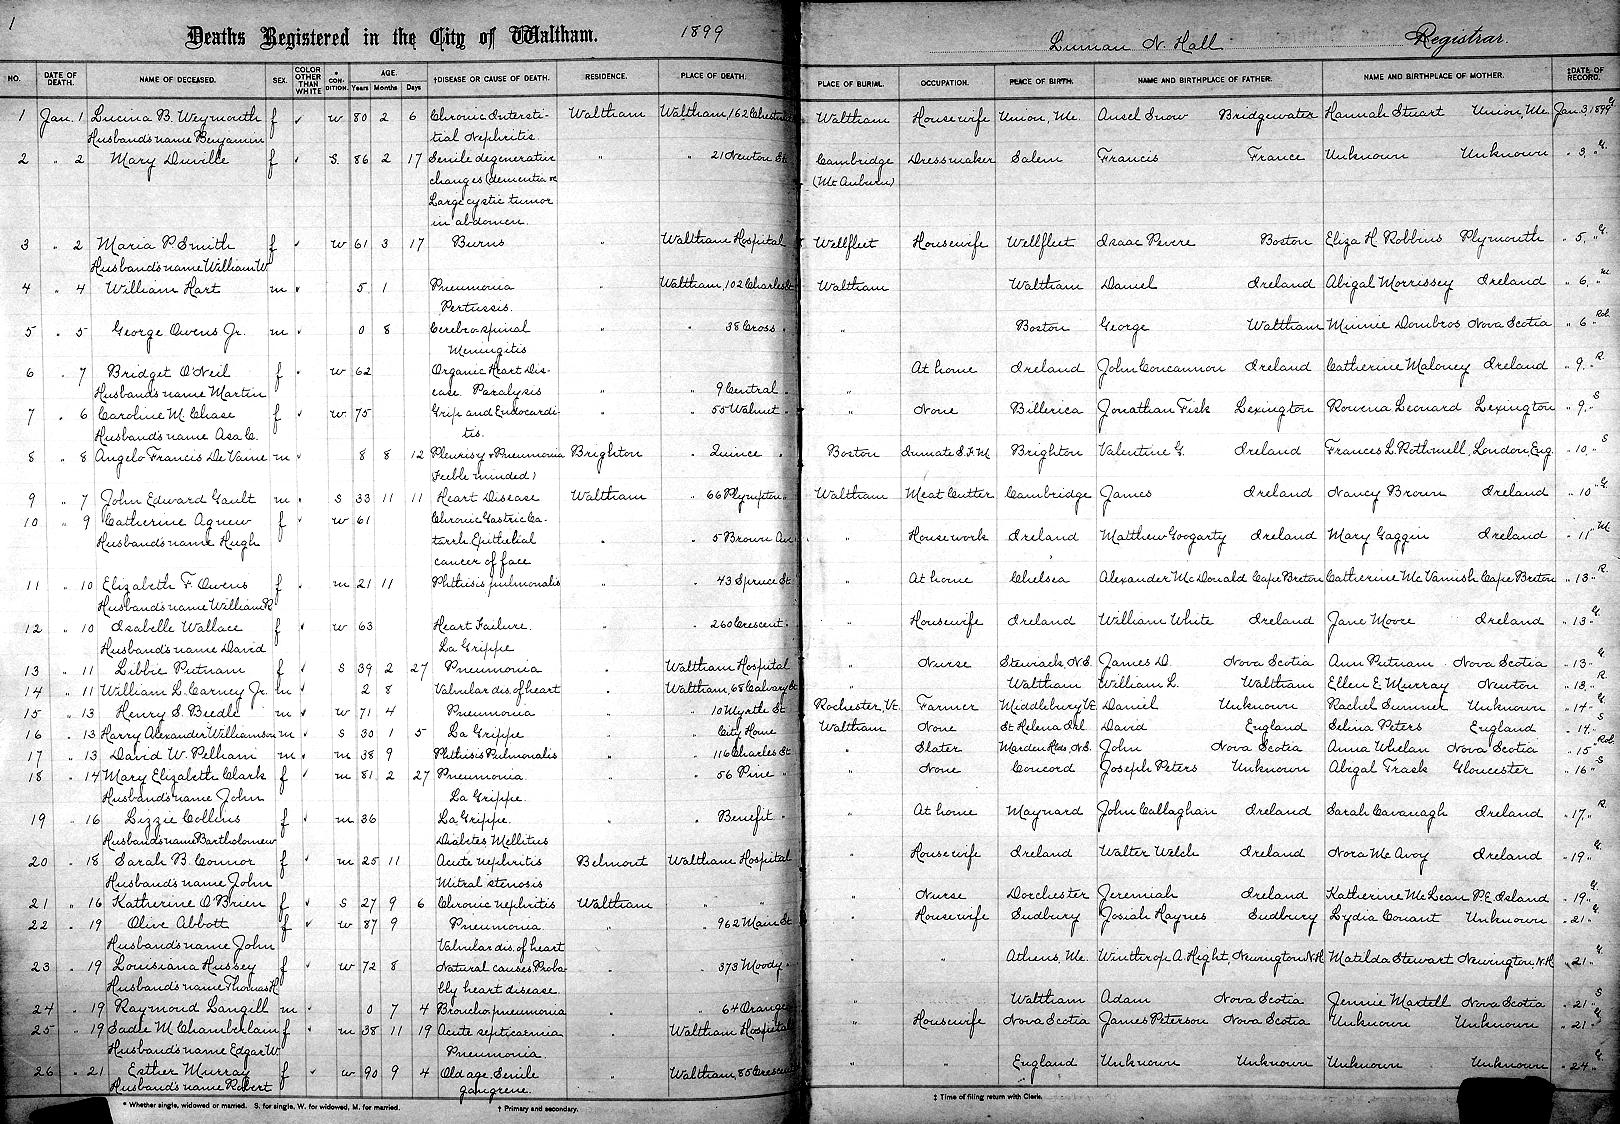 1
Deaths Registered in the City of Waltham. 1899
Luman N. Hall Registrar.
NO. DATE OF DEATH. NAME OF DECEASED. SEX. COLOR OTHER THAN WHITE * CONDITION. AGE. Years Months Days †DISEASE OR CAUSE OF DEATH. RESIDENCE. PLACE OF DEATH. PLACE OF BURIAL. OCCUPATION. PLACE OF BIRTH. NAME AND BIRTHPLACE OF FATHER. NAME AND BIRTHPLACE OF MOTHER. ‡DATE OF RECORD.
1 Jan. 1 Lucina B. Weymouth f ✓ w 80 2 6 Chronic Intersti- Waltham Waltham, 162 Chestnut Waltham Housewife Union, Me. Ansel Snow Bridgewater Hannah Stuart Union, Me. Jan 3, 1899
Husband's name Benjamin tial Nephritis.
2 " 2 Mary Duville f ✓ S. 86 2 17 Senile degenerative " " 21 Newton St. Cambridge Dressmaker Salem Francis France Unknown Unknown " 3, "
changes (dementia (Mt Auburn)
Large cystic tumor
in abdomen.
3 " 2 Maria P. Smith f ✓ w 61 3 17 Burns " Waltham Hospital Wellfleet Housewife Wellfleet Isaac Boston Eliza H. Robbins Plymouth " 5, "
Husband's name William W
4 " 4 William Hart m ✓ 5 1 Pneumonia " Waltham, 102 Charles St Waltham Waltham Daniel Ireland Abigal Morrissey Ireland " 6, "
Pertussis.
5 " 5 George Owens Jr. m ✓ 0 8 Cerebro-spinal " " 38 Cross " " Boston George Waltham Minnie Dombros Nova Scotia " 6 "
Meningitis
6 " 7 Bridget O'Neil f ✓ w 62 Organic Heart Dis- At home Ireland John Concannon Ireland Catherine Maloney Ireland " 9, "
Husband's name Martin ease. Paralysis " " 9 Central " "
7 " 6 Caroline M. Chase f ✓ w 75 Grip and Endocardi- " " 55 Walnut " " None Billerica Jonathan Fisk Lexington Rowena Leonard Lexington " 9, "
Husband's name Asa C. tis.
8 " 8 Angelo Francis De Vaine m ✓ 8 8 12 Pleurisy & Pneumonia Brighton " Quince " Boston Inmate S.F.M Brighton Valentine G. Ireland Frances L. Rothwell, London, Eng. " 10, "
Feeble minded)
9 " 7 John Edward Gault m ✓ S 33 11 11 Heart Disease Waltham " 66 Plympton " Waltham Meat Cutter Cambridge James Ireland Nancy Brown Ireland " 10 "
10 " 9 Catherine Agnew f ✓ w 61 Chronic Gastric Ca-
Husband's name Hugh tarrh Epithelial " " 5 Brown Av " Housework Ireland Matthew Googarty Ireland Mary Gaggin Ireland " 11 "
cancer of face
11 " 10 Elizabeth F. Owens f ✓ m 21 11 Phthisis pulmonalis " " 43 Spruce St " At home Chelsea Alexander McDonald Cape Breton Catherine McVamish Cape Breton " 13 "
Husband's name William R
12 " 10 Isabelle Wallace f ✓ w 63 Heart Failure. " " 260 Crescent " " Housewife Ireland William White Ireland Jane Moore Ireland " 13 "
Husband's name David La Grippe
13 " 11 Libbie Putnam f ✓ S 39 2 27 Pneumonia " Waltham Hospital " Nurse Stewiack, N.S. James D. Nova Scotia Ann Putnam Nova Scotia " 13 "
14 " 11 William L. Carney Jr. m ✓ 2 8 Valvular dis. of heart " Waltham, 68 Calvary St " Waltham William L. Waltham Ellen E. Murray Newton " 13, "
15 " 13 Henry S. Beedle m ✓ w 71 4 Pneumonia " " 10 Myrtle St Rochester, Vt. Farmer Middlebury Vt. Daniel Unknown Rachel Sumner Unknown " 14 "
16 " 13 Harry Alexander Williamson m ✓ S 30 1 5 La Grippe " City Home Waltham None St Helena Isl David England Selina Peters England " 14 "
17 " 13 David W. Pelham m ✓ m 38 9 Phthisis Pulmonalis " " 116 Charles St " Slater N.S. John Nova Scotia Anna Whelan Nova Scotia " 15 "
18 " 14 Mary Elizabeth Clark f ✓ m 81 2 27 Pneumonia " " 56 Pine " " None Concord Joseph Peters Unknown Abigal Trask Gloucester " 16 "
Husband's name John La Grippe.
19 " 16 Lizzie Collins f ✓ m 36 La Grippe. " " Benefit " " At home Maynard John Callaghan Ireland Sarah Cavanagh Ireland " 17, "
Husband's name Bartholomew Diabetes Mellitus
20 " 18 Sarah B. Connor f ✓ m 25 11 Acute nephritis Belmont Waltham Hospital " Housewife Ireland Walter Welch Ireland Nora McAvoy Ireland " 19 "
Husband's name John Mitral stenosis
21 " 16 Katherine O'Brien f ✓ S 27 9 6 Chronic nephritis Waltham " " " Nurse Dorchester Jeremiah Ireland Katherine McLean P.E. Island " 19 "
22 " 19 Olive Abbott f ✓ w 87 9 Pneumonia " " 962 Main St " Housewife Sudbury Josiah Haynes Sudbury Lydia Conant Unknown " 21 "
Husband's name John Valvular dis. of heart
23 " 19 Louisiana Hussey f ✓ w 72 8 Natural causes Proba- " " 373 Moody " " " Athens, Me. Winthrop A. Hight, Newington N.H Matilda Stewart Newington, N.H. " 21 "
Husband's name Thomas H. bly heart disease.
24 " 19 Raymond Langill m ✓ 0 7 4 Broncho-pneumonia " " 64 Orange " Waltham Adam Nova Scotia Jennie Martell Nova Scotia " 21 "
25 " 19 Sadie M. Chamberlain f ✓ m 38 11 19 Acute septicaemia " Waltham Hospital " Housewife Nova Scotia James Peterson Nova Scotia Unknown Unknown " 21 "
Husband's name Edgar W Pneumonia
26 " 21 Esther Murray f ✓ w 90 9 4 Old age Senile " Waltham, 85 Crescent " " England Unknown Unknown Unknown Unknown " 24 "
Husband's name Robert gangrene.
* Whether single, widowed or married. S. for single, W. for widowed, M. for married. † Primary and secondary. ‡ Time of filing return with Clerk.